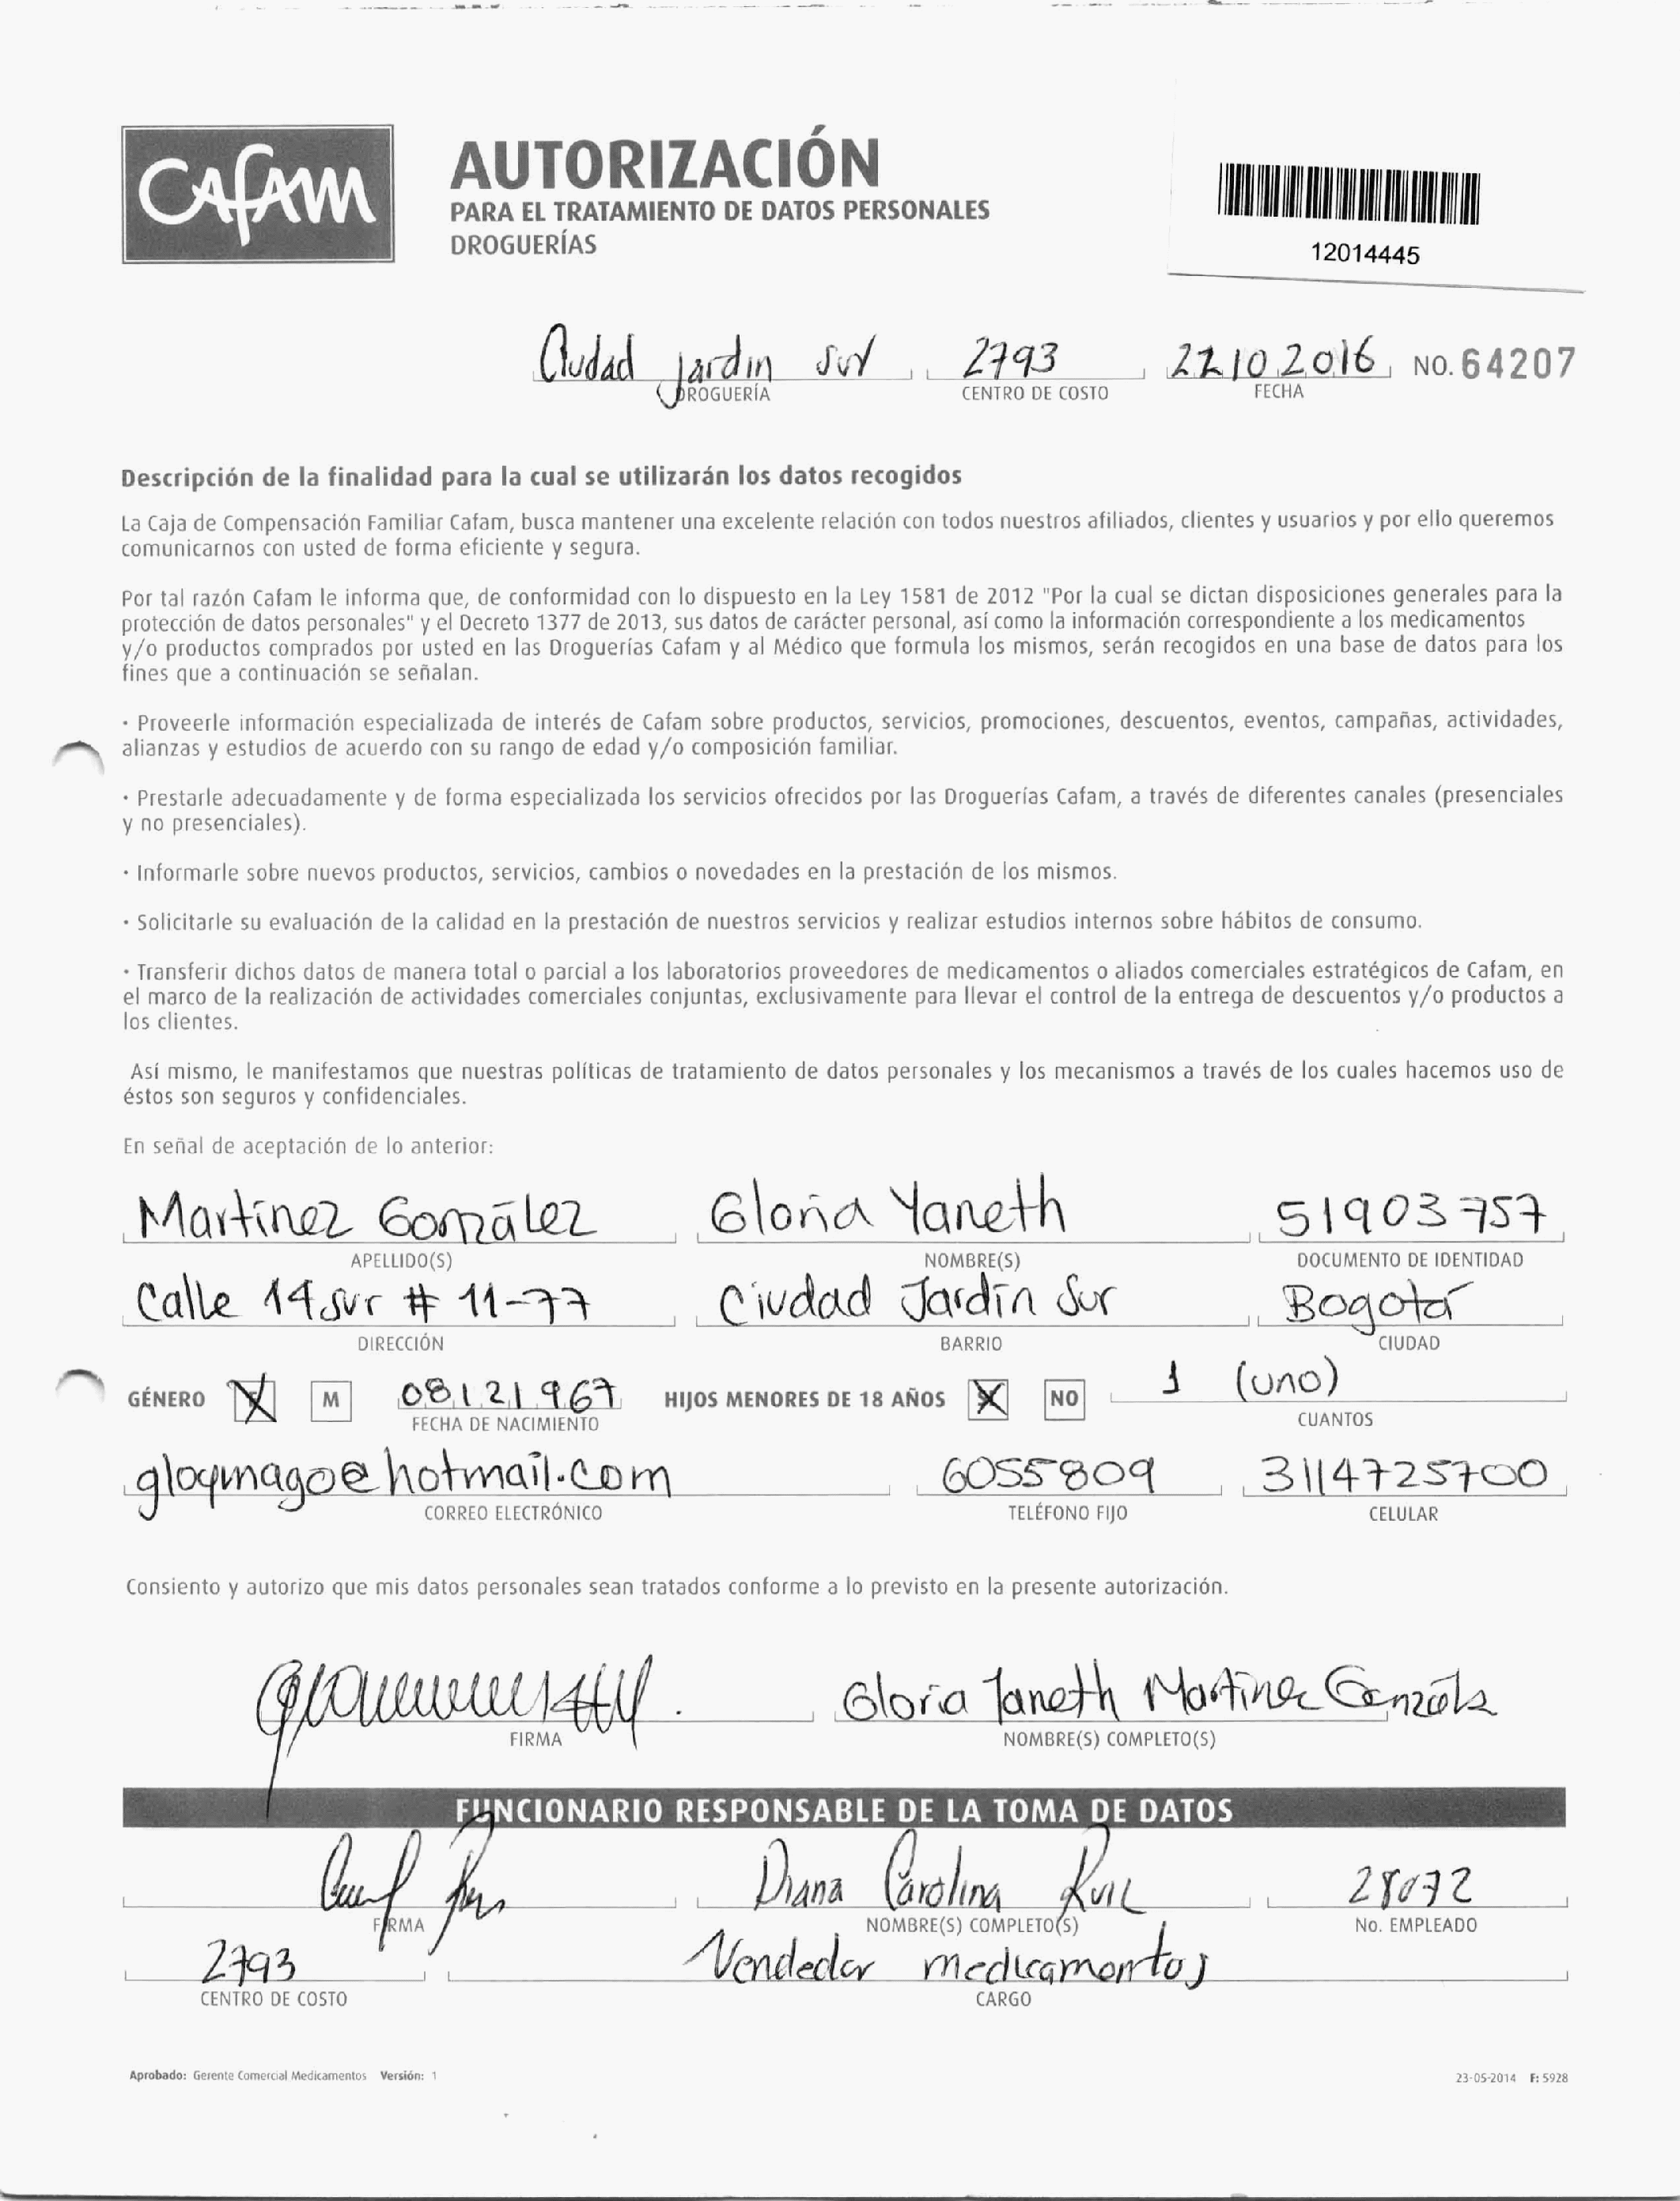 CAFAM
AUTORIZACIÓN
PARA EL TRATAMIENTO DE DATOS PERSONALES
DROGUERÍAS
12014445
Ciudad Jardin Sur 2793 22 10 2016 NO. 64207
DROGUERÍA CENTRO DE COSTO FECHA
Descripción de la finalidad para la cual se utilizarán los datos recogidos
La Caja de Compensación Familiar Cafam, busca mantener una excelente relación con todos nuestros afiliados, clientes y usuarios y por ello queremos
comunicarnos con usted de forma eficiente y segura.
Por tal razón Cafam le informa que, de conformidad con lo dispuesto en la Ley 1581 de 2012 "Por la cual se dictan disposiciones generales para la
protección de datos personales" y el Decreto 1377 de 2013, sus datos de carácter personal, así como la información correspondiente a los medicamentos
y/o productos comprados por usted en las Droguerías Cafam y al Médico que formula los mismos, serán recogidos en una base de datos para los
fines que a continuación se señalan.
· Proveerle información especializada de interés de Cafam sobre productos, servicios, promociones, descuentos, eventos, campañas, actividades,
alianzas y estudios de acuerdo con su rango de edad y/o composición familiar.
· Prestarle adecuadamente y de forma especializada los servicios ofrecidos por las Droguerías Cafam, a través de diferentes canales (presenciales
y no presenciales).
· Informarle sobre nuevos productos, servicios, cambios o novedades en la prestación de los mismos.
· Solicitarle su evaluación de la calidad en la prestación de nuestros servicios y realizar estudios internos sobre hábitos de consumo.
· Transferir dichos datos de manera total o parcial a los laboratorios proveedores de medicamentos o aliados comerciales estratégicos de Cafam, en
el marco de la realización de actividades comerciales conjuntas, exclusivamente para llevar el control de la entrega de descuentos y/o productos a
los clientes.
Así mismo, le manifestamos que nuestras políticas de tratamiento de datos personales y los mecanismos a través de los cuales hacemos uso de
éstos son seguros y confidenciales.
En señal de aceptación de lo anterior:
Martínez González Gloria Yaneth 51903757
APELLIDO(S) NOMBRE(S) DOCUMENTO DE IDENTIDAD
Calle 14 sur # 11-77 Ciudad Jardín Sur Bogotá
DIRECCIÓN BARRIO CIUDAD
GÉNERO X M 08121967 HIJOS MENORES DE 18 AÑOS X NO 1 (uno)
FECHA DE NACIMIENTO CUANTOS
gloymago@hotmail.com 6055809 3114725700
CORREO ELECTRÓNICO TELÉFONO FIJO CELULAR
Consiento y autorizo que mis datos personales sean tratados conforme a lo previsto en la presente autorización.
Gloria Yaneth Martínez González
FIRMA NOMBRE(S) COMPLETO(S)
FUNCIONARIO RESPONSABLE DE LA TOMA DE DATOS
Diana Carolina Ruiz 28072
FIRMA NOMBRE(S) COMPLETO(S) No. EMPLEADO
2793 Vendedor medicamentos
CENTRO DE COSTO CARGO
Aprobado: Gerente Comercial Medicamentos Versión: 1 23-05-2014 F: 5928